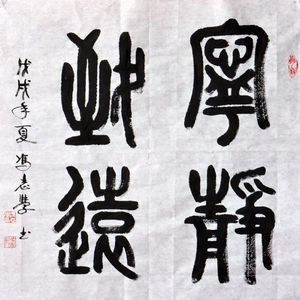 寧靜
致遠
戊戌年夏 馮志慧 书